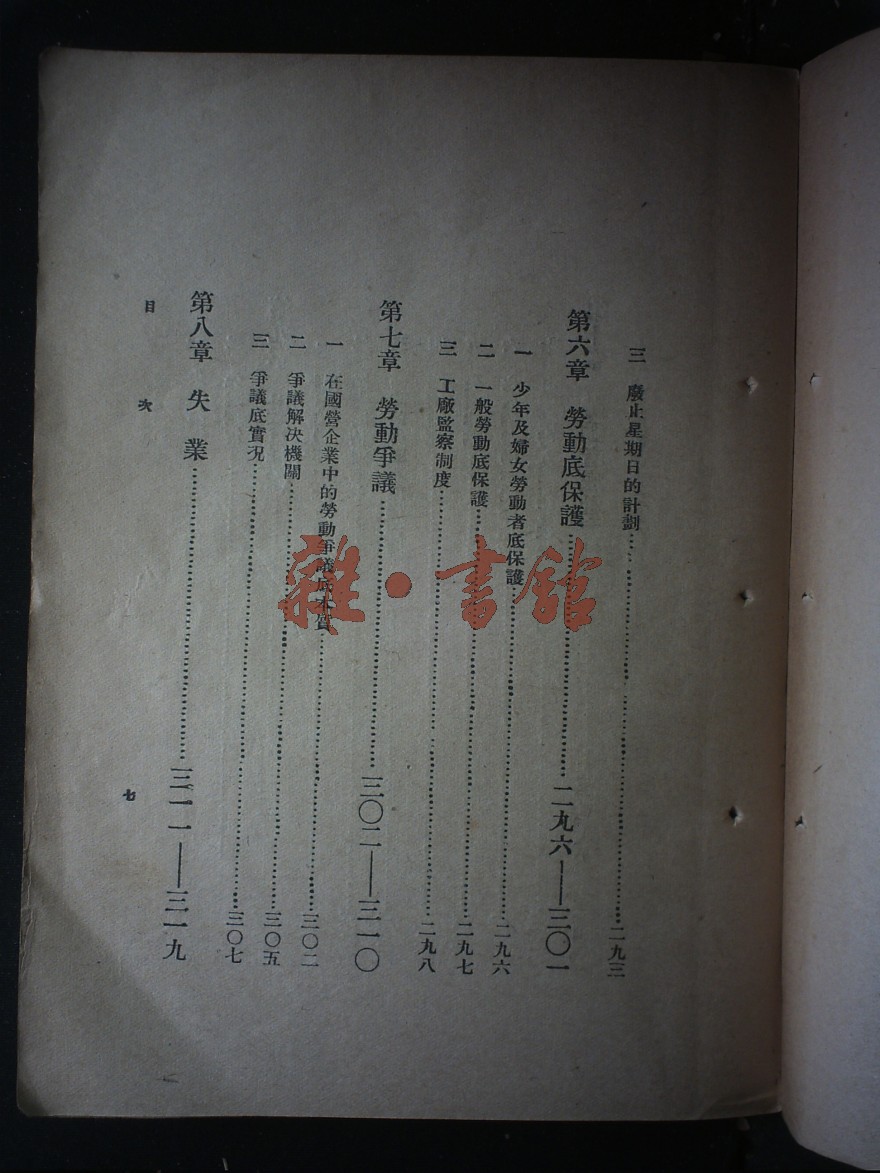 三　廢止星期日的計劃……二九三
第六章　勞動底保護……二九六——三〇一
一　少年及婦女勞動者底保護……二九六
二　一般勞動底保護……二九七
三　工廠監察制度……二九八
第七章　勞動爭議……三〇二——三一〇
一　在國營企業中的勞動爭議底本質……三〇二
二　爭議解決機關……三〇五
三　爭議底實況……三〇七
第八章　失業……三一一——三一九
目次　七
雜·書館